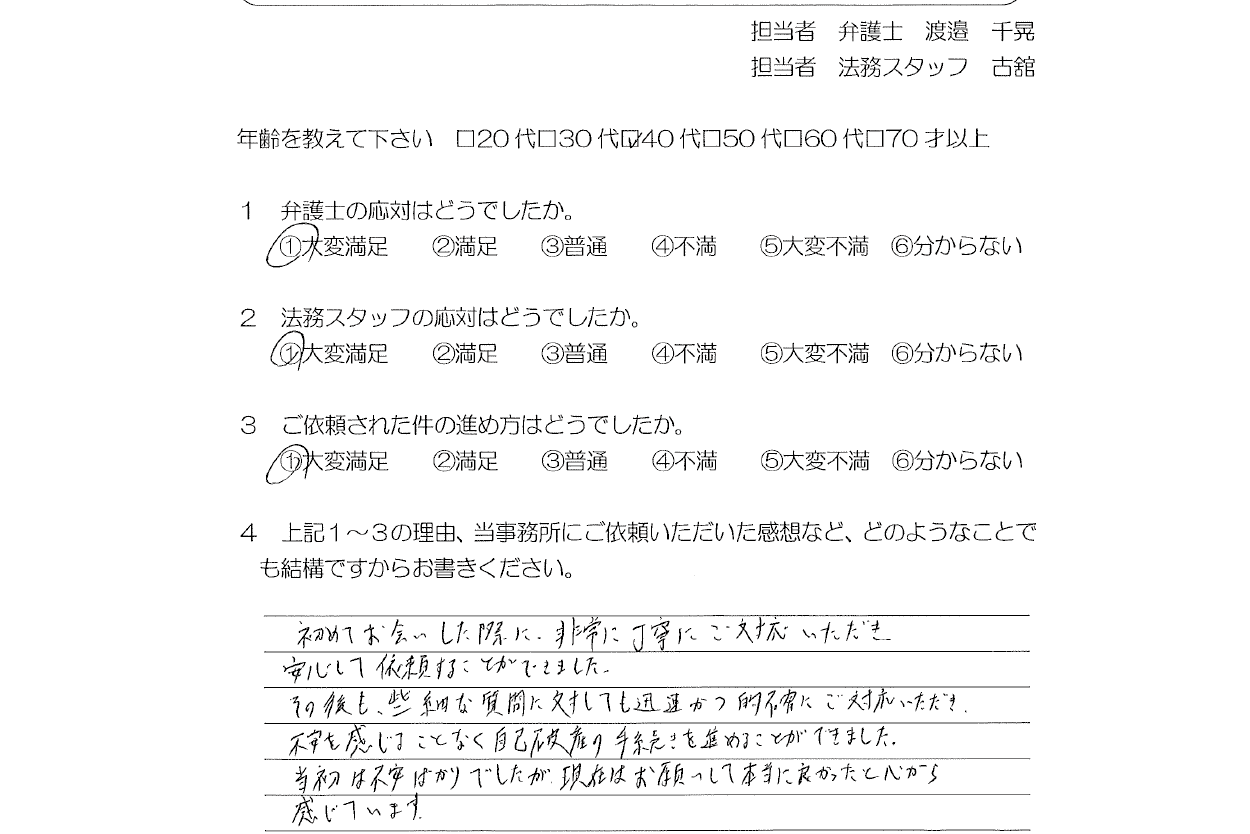 担当者　弁護士　渡邉　千晃
担当者　法務スタッフ　古舘
年齢を教えて下さい　□20代□30代☑40代□50代□60代□70才以上
１　弁護士の応対はどうでしたか。
①大変満足　②満足　③普通　④不満　⑤大変不満　⑥分からない
２　法務スタッフの応対はどうでしたか。
①大変満足　②満足　③普通　④不満　⑤大変不満　⑥分からない
３　ご依頼された件の進め方はどうでしたか。
①大変満足　②満足　③普通　④不満　⑤大変不満　⑥分からない
４　上記１～３の理由、当事務所にご依頼いただいた感想など、どのようなことで
も結構ですからお書きください。
初めてお会いした際に、非常に丁寧にご対応いただき
安心して依頼することができました。
その後も、些細な質問に対しても迅速かつ的確にご対応いただき、
不安を感じることなく自己破産の手続きを進めることができました。
当初は不安ばかりでしたが、現在はお願いして本当に良かったと心から
感じています。